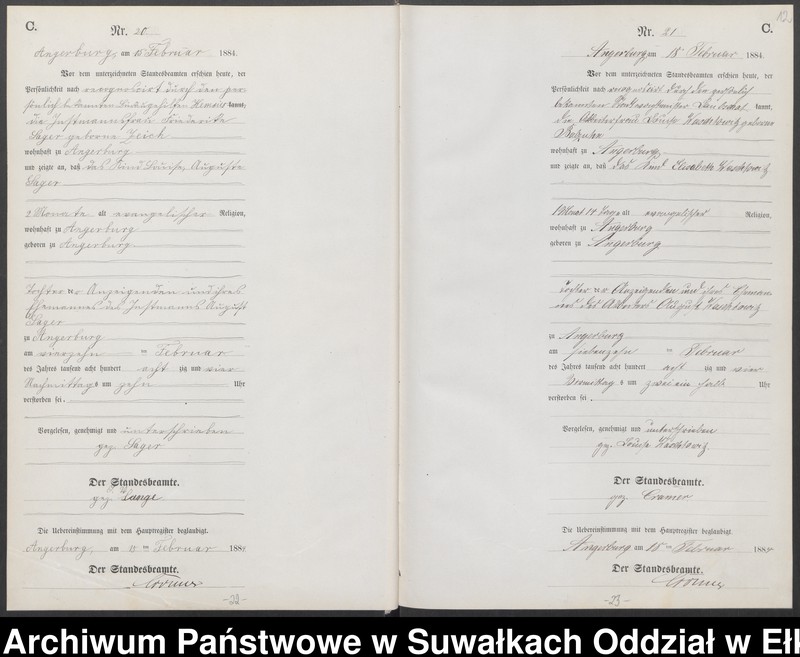 C.
Nr. 20
Angerburg, am 15 Februar 1884.
Vor dem unterzeichneten Standesbeamten erschien heute, der
Persönlichkeit nach durch den per
sönlich bekannten kannt,
die Instmannsfrau Friederike
Sager geborne Zeich
wohnhaft zu Angerburg
und zeigte an, daß das Kind Louise, Auguste
Sager
2 Monate alt evangelischer Religion,
wohnhaft zu Angerburg
geboren zu Angerburg
Tochter der Anzeigenden und ihres
Ehemannes des Instmanns August
Sager
zu Angerburg
am vierzehn ten Februar
des Jahres tausend acht hundert acht zig und vier
Nachmittags um zehn Uhr
verstorben sei.
Vorgelesen, genehmigt und unterschrieben
gez. Sager
Der Standesbeamte.
gez. Lange
Die Uebereinstimmung mit dem Hauptregister beglaubigt.
Angerburg, am ten Februar 1884
Der Standesbeamte.
-22-
C.
Nr. 21
Angerburg am 18 Februar 1884
Vor dem unterzeichneten Standesbeamten erschien heute, der
Persönlichkeit nach durch den
bekannten kannt,
die Arbeiterfrau Louise geborne
wohnhaft zu Angerburg
und zeigte an, daß das Kind Elisabeth
1 Monat 14 Tage alt evangelischer Religion,
wohnhaft zu Angerburg
geboren zu Angerburg
Tochter der Anzeigenden und ihres Ehemannes
des Arbeiters August
zu Angerburg
am siebenzehn ten Februar
des Jahres tausend acht hundert acht zig und vier
Vormittags um zwei ein halb Uhr
verstorben sei.
Vorgelesen, genehmigt und unterschrieben
gez. Louise
Der Standesbeamte.
gez. Cramer
Die Uebereinstimmung mit dem Hauptregister beglaubigt.
Angerburg am 18 ten Februar 1884
Der Standesbeamte.
-23-
Archiwum Państwowe w Suwałkach Oddział w Ełk